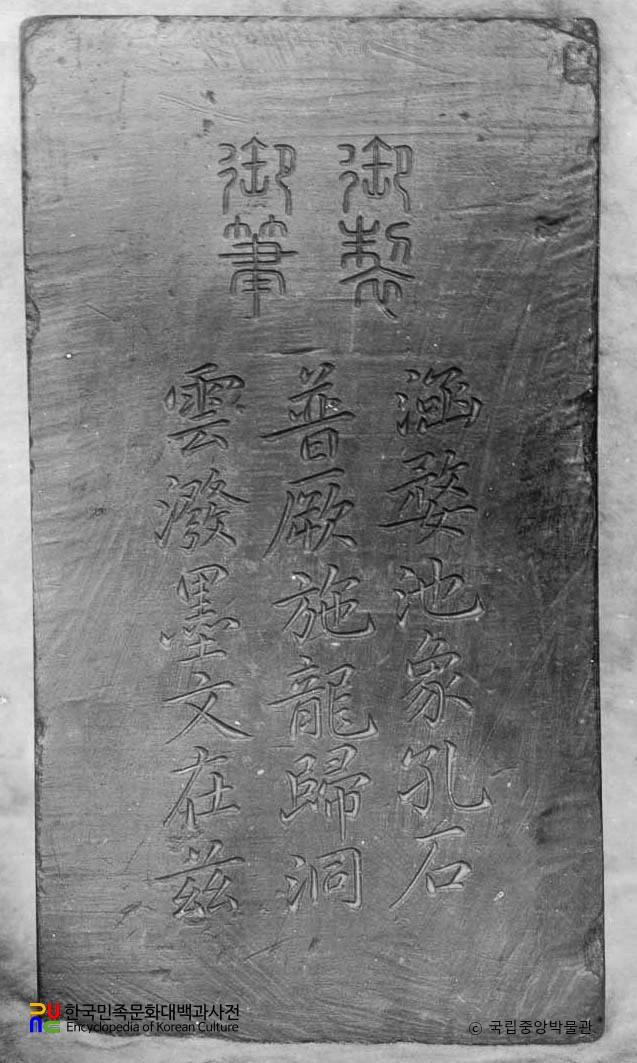 御製
御筆
涵婺池象孔石
普厥施龍歸洞
雲潑墨文在茲
한국민족문화대백과사전
Encyclopedia of Korean Culture
© 국립중앙박물관